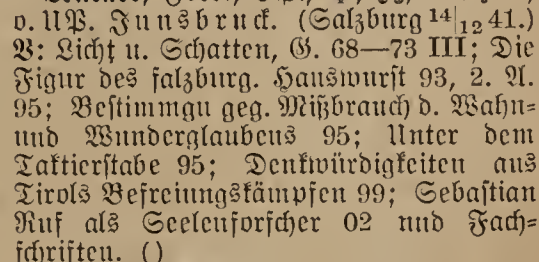 v. UP. Innsbruck. (Salzburg 14|12 41.)
V: Licht u. Schatten, G. 68—73 III; Die
Figur des salzburg. Hanswurst 93, 2. A.
95; Bestimmgn geg. Mißbrauch d. Wahn=
und Wunderglaubens 95; Unter dem
Taktierstabe 95; Denkwürdigkeiten aus
Tirols Befreiungskämpfen 99; Sebastian
Ruf als Seelenforscher 02 und Fach=
schriften. ()